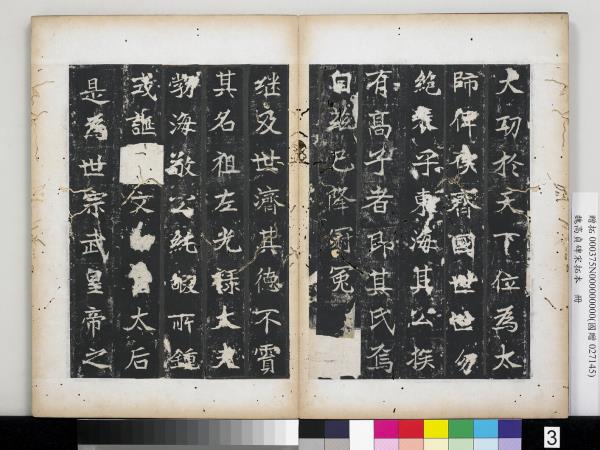 大功於天下位為太
師俾侯齊國世世勿
絕表乎東海其公族
有高子者即其氏焉
自茲已降冠冕
继及世濟其德不霣
其名祖左光祿大夫
勃海敬公純嘏所鍾
式誕文太后
是為世宗武皇帝之
贈拓 000375N000000000(國贈 027145)
魏高貞碑宋拓本 冊
3